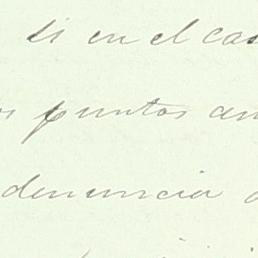 si en el cas
os puntos an
denuncia